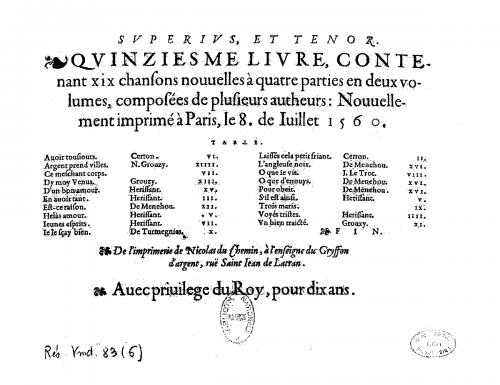 SVPERIVS, ET TENOR.
QVINZIESME LIVRE, CONTE-
nant xix chansons nouuelles à quatre parties en deux vo-
lumes, composées de plusieurs autheurs: Nouuelle-
ment imprimé à Paris, le 8. de Iuillet 1560.
TABLE.
Auoir tousiours. Certon. VI.
Argent prend villes. N. Grouzy. XIIII.
Ce meschant corps. VII.
Dy moy Venus. Grouzy. XIII.
D'un bon amour. Herissant. XV.
En auoir tant. Herissant. III.
Est-ce raison. De Menehou. XII.
Helas amour. Herissant. V.
Ieunes esprits. Herissant. VII.
Ie le sçay bien. De Turmegnies. X.
Laissés cela petit friant. Certon. II.
L'angleuse noix. De Menehou. XVI.
O que ie vis. J. Le Troc. VIII.
O que d'ennuys. De Menehou. XVI.
Pour obeir. De Menehou. XV.
S'il est ainsi. Herissant. V.
Trois maris. IX.
Voyés tristes. Herissant. IIII.
Vn bien traicté. Grouzy. XI.
FIN.
De l'imprimerie de Nicolas du Chemin, à l'enseigne du Gryffon
d'argent, ruë Saint Iean de Latran.
Auec priuilege du Roy, pour dix ans.
Rés Vmd. 83 (6)